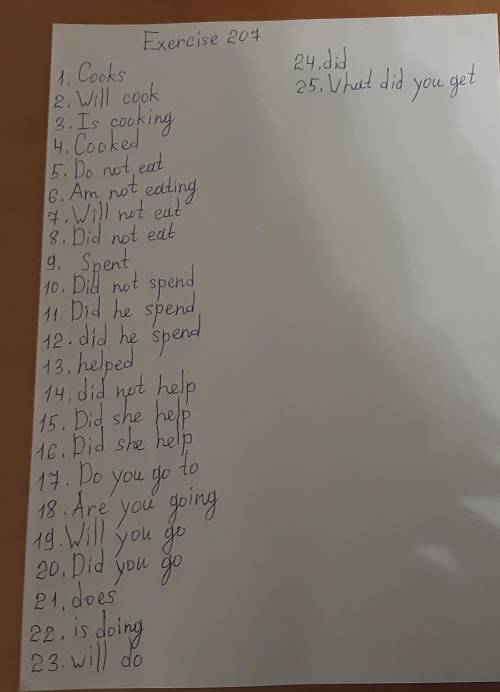 Exercise 207
1. Cooks
2. Will cook
3. Is cooking
4. Cooked
5. Do not eat
6. Am not eating
7. Will not eat
8. Did not eat
9. Spent
10. Did not spend
11. Did he spend
12. did he spend
13. helped
14. did not help
15. Did she help
16. Did she help
17. Do you go to
18. Are you going
19. Will you go
20. Did you go
21. does
22. is doing
23. will do
24. did
25. What did you get